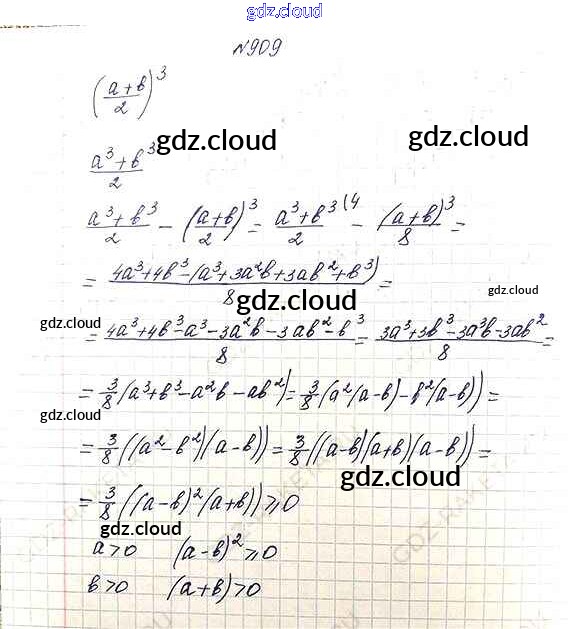 gdz.cloud
N909
((a+b)/2)^3
gdz.cloud gdz.cloud
(a^3+b^3)/2
(a^3+b^3)/2 - ((a+b)/2)^3 = (a^3+b^3)/2 (4 - (a+b)^3/8 =
= (4a^3+4b^3-(a^3+3a^2b+3ab^2+b^3))/8 =
gdz.cloud gdz.cloud
gdz.cloud
= (4a^3+4b^3-a^3-3a^2b-3ab^2-b^3)/8 = (3a^3+3b^3-3a^3b-3ab^2)/8 =
gdz.cloud gdz.cloud
= 3/8 (a^3+b^3-a^2b-ab^2) = 3/8 (a^2(a-b)-b^2(a-b)) =
gdz.cloud
= 3/8 ((a^2-b^2)(a-b)) = 3/8 ((a-b)(a+b)(a-b)) =
gdz.cloud
= 3/8 ((a-b)^2(a+b)) ⩾ 0
gdz.cloud
a>0 (a-b)^2 ⩾ 0
b>0 (a+b)>0